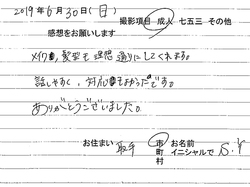 2019年6月30日(日)
撮影項目 成人 七五三 その他
感想をお願いします
メイク、髪型も理想通りにしてくれます。
話しやすく、対応もよかったです。
ありがとうございました。
お住まい 取手 市町村 お名前 イニシャルで S.Y